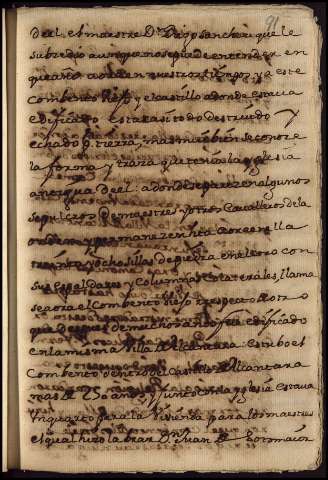 91
deel el maestre Dn Diego sanchez que le
subzedio aunque no se puede entender en
que año ahora en nuestros tiempos ya este
Combento biejo y el castillo adonde estava
edificado esta casi todo destruydo y
echado p. tierra, mas muy bien se conoze
la forma y traza que tenia la yglesia
antigua deel. adonde parezen algunos
sepulcros De maestres y otros Cavalleros de la
orden y permanezen hta aora en ella
treinta y ocho sillas de piedra en el coro con
sus espaldares y columnas Colaterales, llama
se aora el Combento biejo respecto de otro
que Despues de muchos años fue edificado
en la misma Villa de Alcantara estubo el
Combento dentro del Castillo de Alcantara
mas de 250 años, y junto con la yglesia estava
Un quarto para la Vivienda para los maestres
el qual hizo labrar Dn Juan de Sotomaior